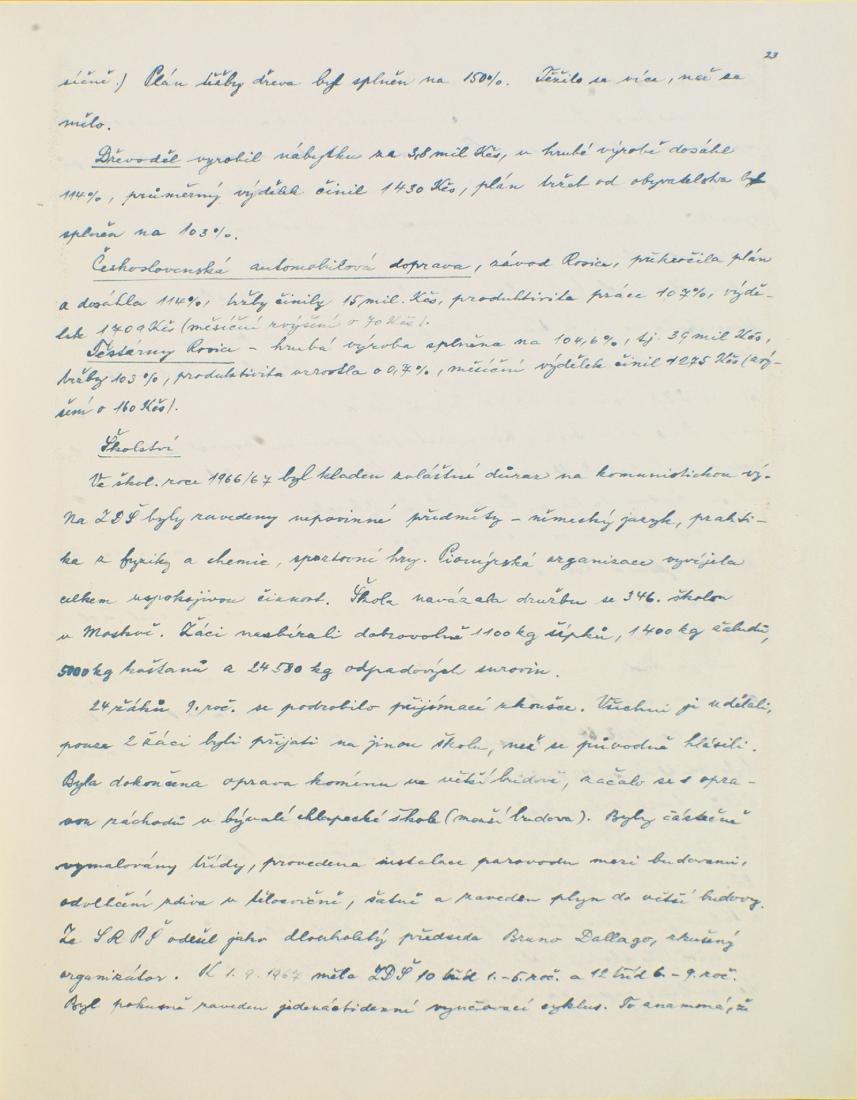 23
síčně.) Plán těžby dřeva byl splněn na 150%. Těžilo se více, než se
mělo.
Dřevoděl vyrobil nábytku za 3,8 mil Kčs, v hrubé výrobě dosáhl
114%, průměrný výdělek činil 1430 Kčs, plán tržeb od obyvatelstva byl
splněn na 103%.
Československá automobilová doprava, závod Rosice, překročila plán
a dosáhla 114%, tržby činily 15 mil. Kčs, produktivita práce 107%, výdě-
lek 1409 Kčs (měsíční zvýšení o 70 Kčs).
Těstárny Rosice – hrubá výroba splněna na 104,6%, tj. 39 mil Kčs,
tržby 103%, produktivita vzrostla o 0,7%, měsíční výdělek činil 1275 Kčs (zvý-
šení o 160 Kčs).
Školství
Ve škol. roce 1966/67 byl kladen zvláštní důraz na komunistickou vý-
Na ZDŠ byly zavedeny nepovinné předměty – německý jazyk, prakti-
ka z fyziky a chemie, sportovní hry. Pionýrská organizace vyvíjela
celkem uspokojivou činnost. Škola navázala družbu se 346. školou
v Moskvě. Žáci nasbírali dobrovolně 1100 kg šípků, 1400 kg žaludů,
5000 kg kaštanů a 24 580 kg odpadových surovin.
24 žáků 9. roč. se podrobilo přijímací zkoušce. Všichni ji udělali,
pouze 2 žáci byli přijati na jinou školu, než se původně hlásili.
Byla dokončena oprava komínu ve větší budově, začalo se s opra-
vou záchodů v bývalé chlapecké škole (menší budova). Byly částečně
vymalovány třídy, provedena instalace parovodu mezi budovami,
odvlhčení zdiva v tělocvičně, šatně a zaveden plyn do větší budovy.
Ze SRPŠ odešel jeho dlouholetý předseda Bruno Dallago, zkušený
organizátor. K 1. 9. 1967 měla ZDŠ 10 tříd 1.-5. roč. a 12 tříd 6.-9. roč.
Byl pokusně zaveden jedenáctidenní vyučovací cyklus. To znamená, že